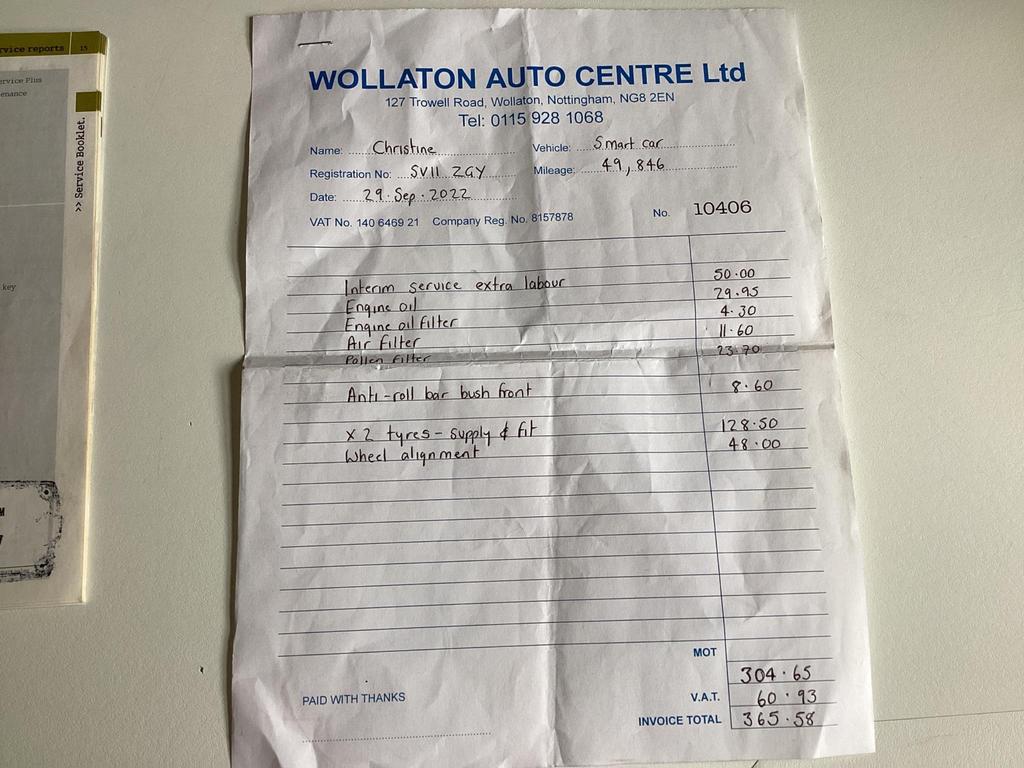 rvice reports 15
ervice Plus
enance
>> Service Booklet.
key
WOLLATON AUTO CENTRE Ltd
127 Trowell Road, Wollaton, Nottingham, NG8 2EN
Tel: 0115 928 1068
Name: Christine Vehicle: Smart car
Registration No: SV11 ZGY Mileage: 49,846
Date: 29.Sep.2022
VAT No. 140 6469 21 Company Reg. No. 8157878 No. 10406
Interim service extra labour 50.00
Engine oil 29.95
Engine oil filter 4.30
Air filter 11.60
Pollen filter 23.70
Anti-roll bar bush front 8.60
x 2 tyres - supply & fit 128.50
Wheel alignment 48.00
MOT
304.65
PAID WITH THANKS V.A.T. 60.93
INVOICE TOTAL 365.58